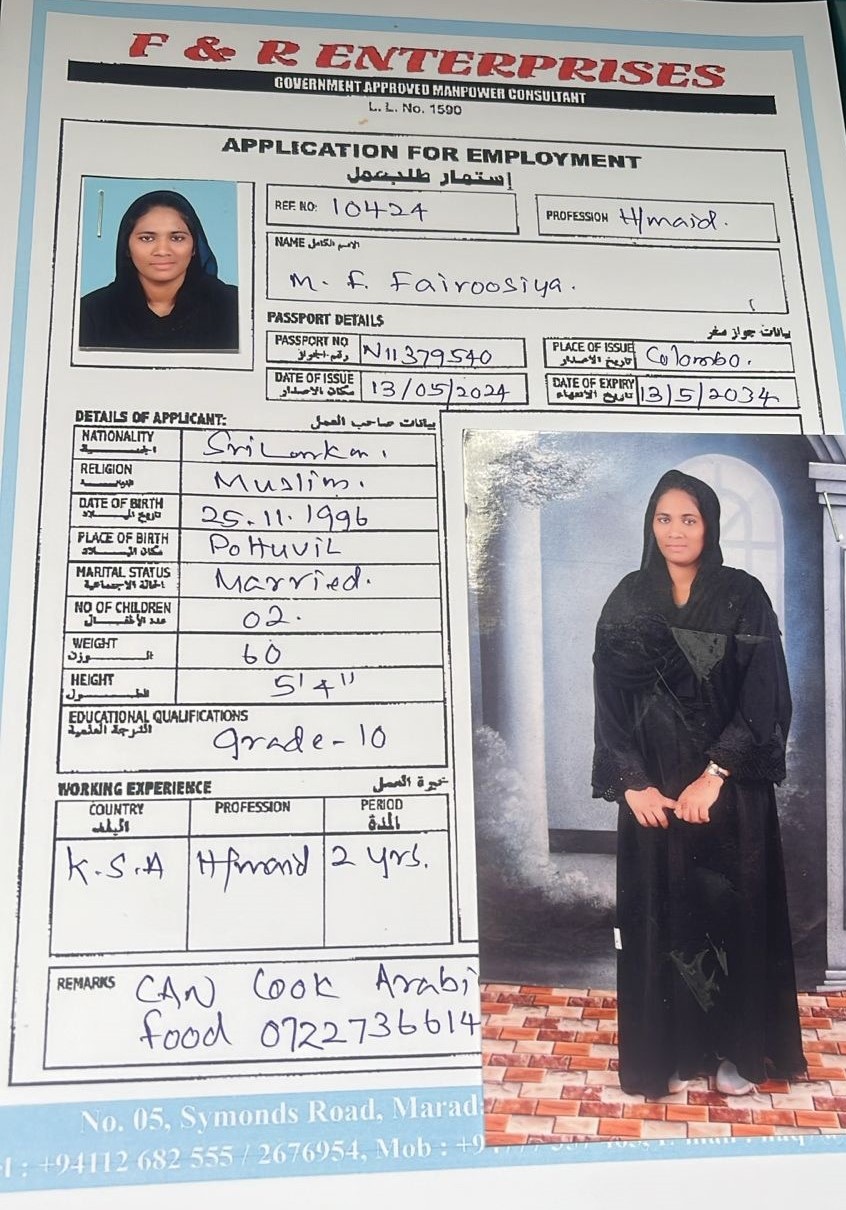 F & R ENTERPRISES
GOVERNMENT APPROVED MANPOWER CONSULTANT
L. L. No. 1590
APPLICATION FOR EMPLOYMENT
إستمار طلب عمل
REF. NO: 10424
PROFESSION H/maid.
NAME الاسم الكامل
M. F. Fairoosiya.
PASSPORT DETAILS بيانات جواز سفر
PASSPORT NO رقم الجواز N11379540
PLACE OF ISSUE تاريخ الاصدار Colombo.
DATE OF ISSUE مكان الاصدار 13/05/2024
DATE OF EXPIRY تاريخ الانتهاء 13/5/2034
DETAILS OF APPLICANT: بيانات صاحب العمل
NATIONALITY Sri Lankan.
RELIGION Muslim.
DATE OF BIRTH تاريخ الميلاد 25.11.1996
PLACE OF BIRTH مكان الميلاد Pottuvil
MARITAL STATUS الحالة الاجتماعية Married.
NO OF CHILDREN عدد الأطفال 02.
WEIGHT الوزن 60
HEIGHT الطول 5'4"
EDUCATIONAL QUALIFICATIONS
الدرجة العلمية grade-10
WORKING EXPERIENCE خبرة العمل
COUNTRY PROFESSION PERIOD
البلد المدة
K.S.A H/maid 2 yrs.
REMARKS CAN Cook Arabi
food 0722736614
No. 05, Symonds Road, Marad
: +94112 682 555 / 2676954, Mob : +9